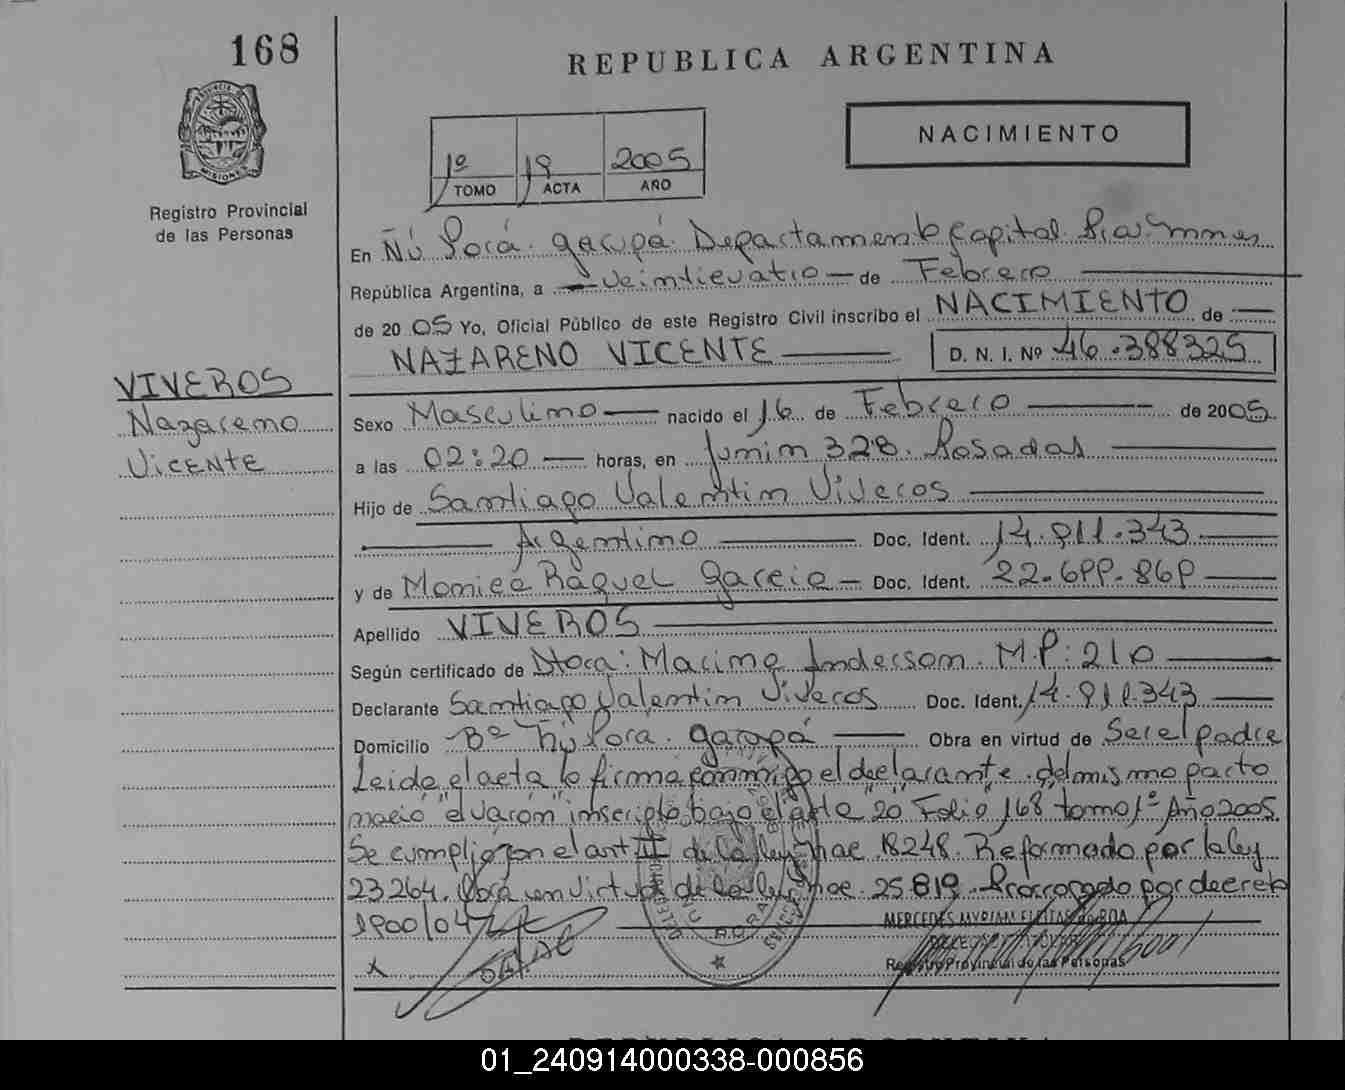 168
REPUBLICA ARGENTINA
PROVINCIA DE
MISIONES
NACIMIENTO
1º 19 2005
TOMO ACTA AÑO
Registro Provincial
de las Personas
En Ñú Porá. Garupá. Departamento Capital. Misiones
República Argentina, a veinticuatro de Febrero
de 2005 Yo, Oficial Público de este Registro Civil inscribo el NACIMIENTO de
NAZARENO VICENTE D. N. I. Nº 46.388325
VIVEROS
Nazareno
VICENTE
Sexo Masculino nacido el 16 de Febrero de 2005
a las 02:20 horas, en Junin 328. Posadas
Hijo de Santiago Valentin Viveros
Argentino Doc. Ident. 14.911.343
y de Monica Raquel Garcia Doc. Ident. 22.699.869
Apellido VIVEROS
Según certificado de Dtora: Marina Anderson. M.P: 210
Declarante Santiago Valentin Viveros Doc. Ident. 14.911.343
Domicilio Bº Ñu Pora. Garupá Obra en virtud de Ser el padre
Leida el acta la firma conmigo el declarante. del mismo parto
nació "el varón" inscripto bajo el acta "20" Folio 168 tomo 1º Año 2005.
Se cumplió con el art II de la ley nac. 18248. Reformado por la ley
23264. Obra en virtud de la ley nac. 25.819. Prorrogado por decreto
1900/04
X
MERCEDES MYRIAM
Registro Provincial de las Personas
REPUBLICA ARGENTINA
01_240914000338-000856